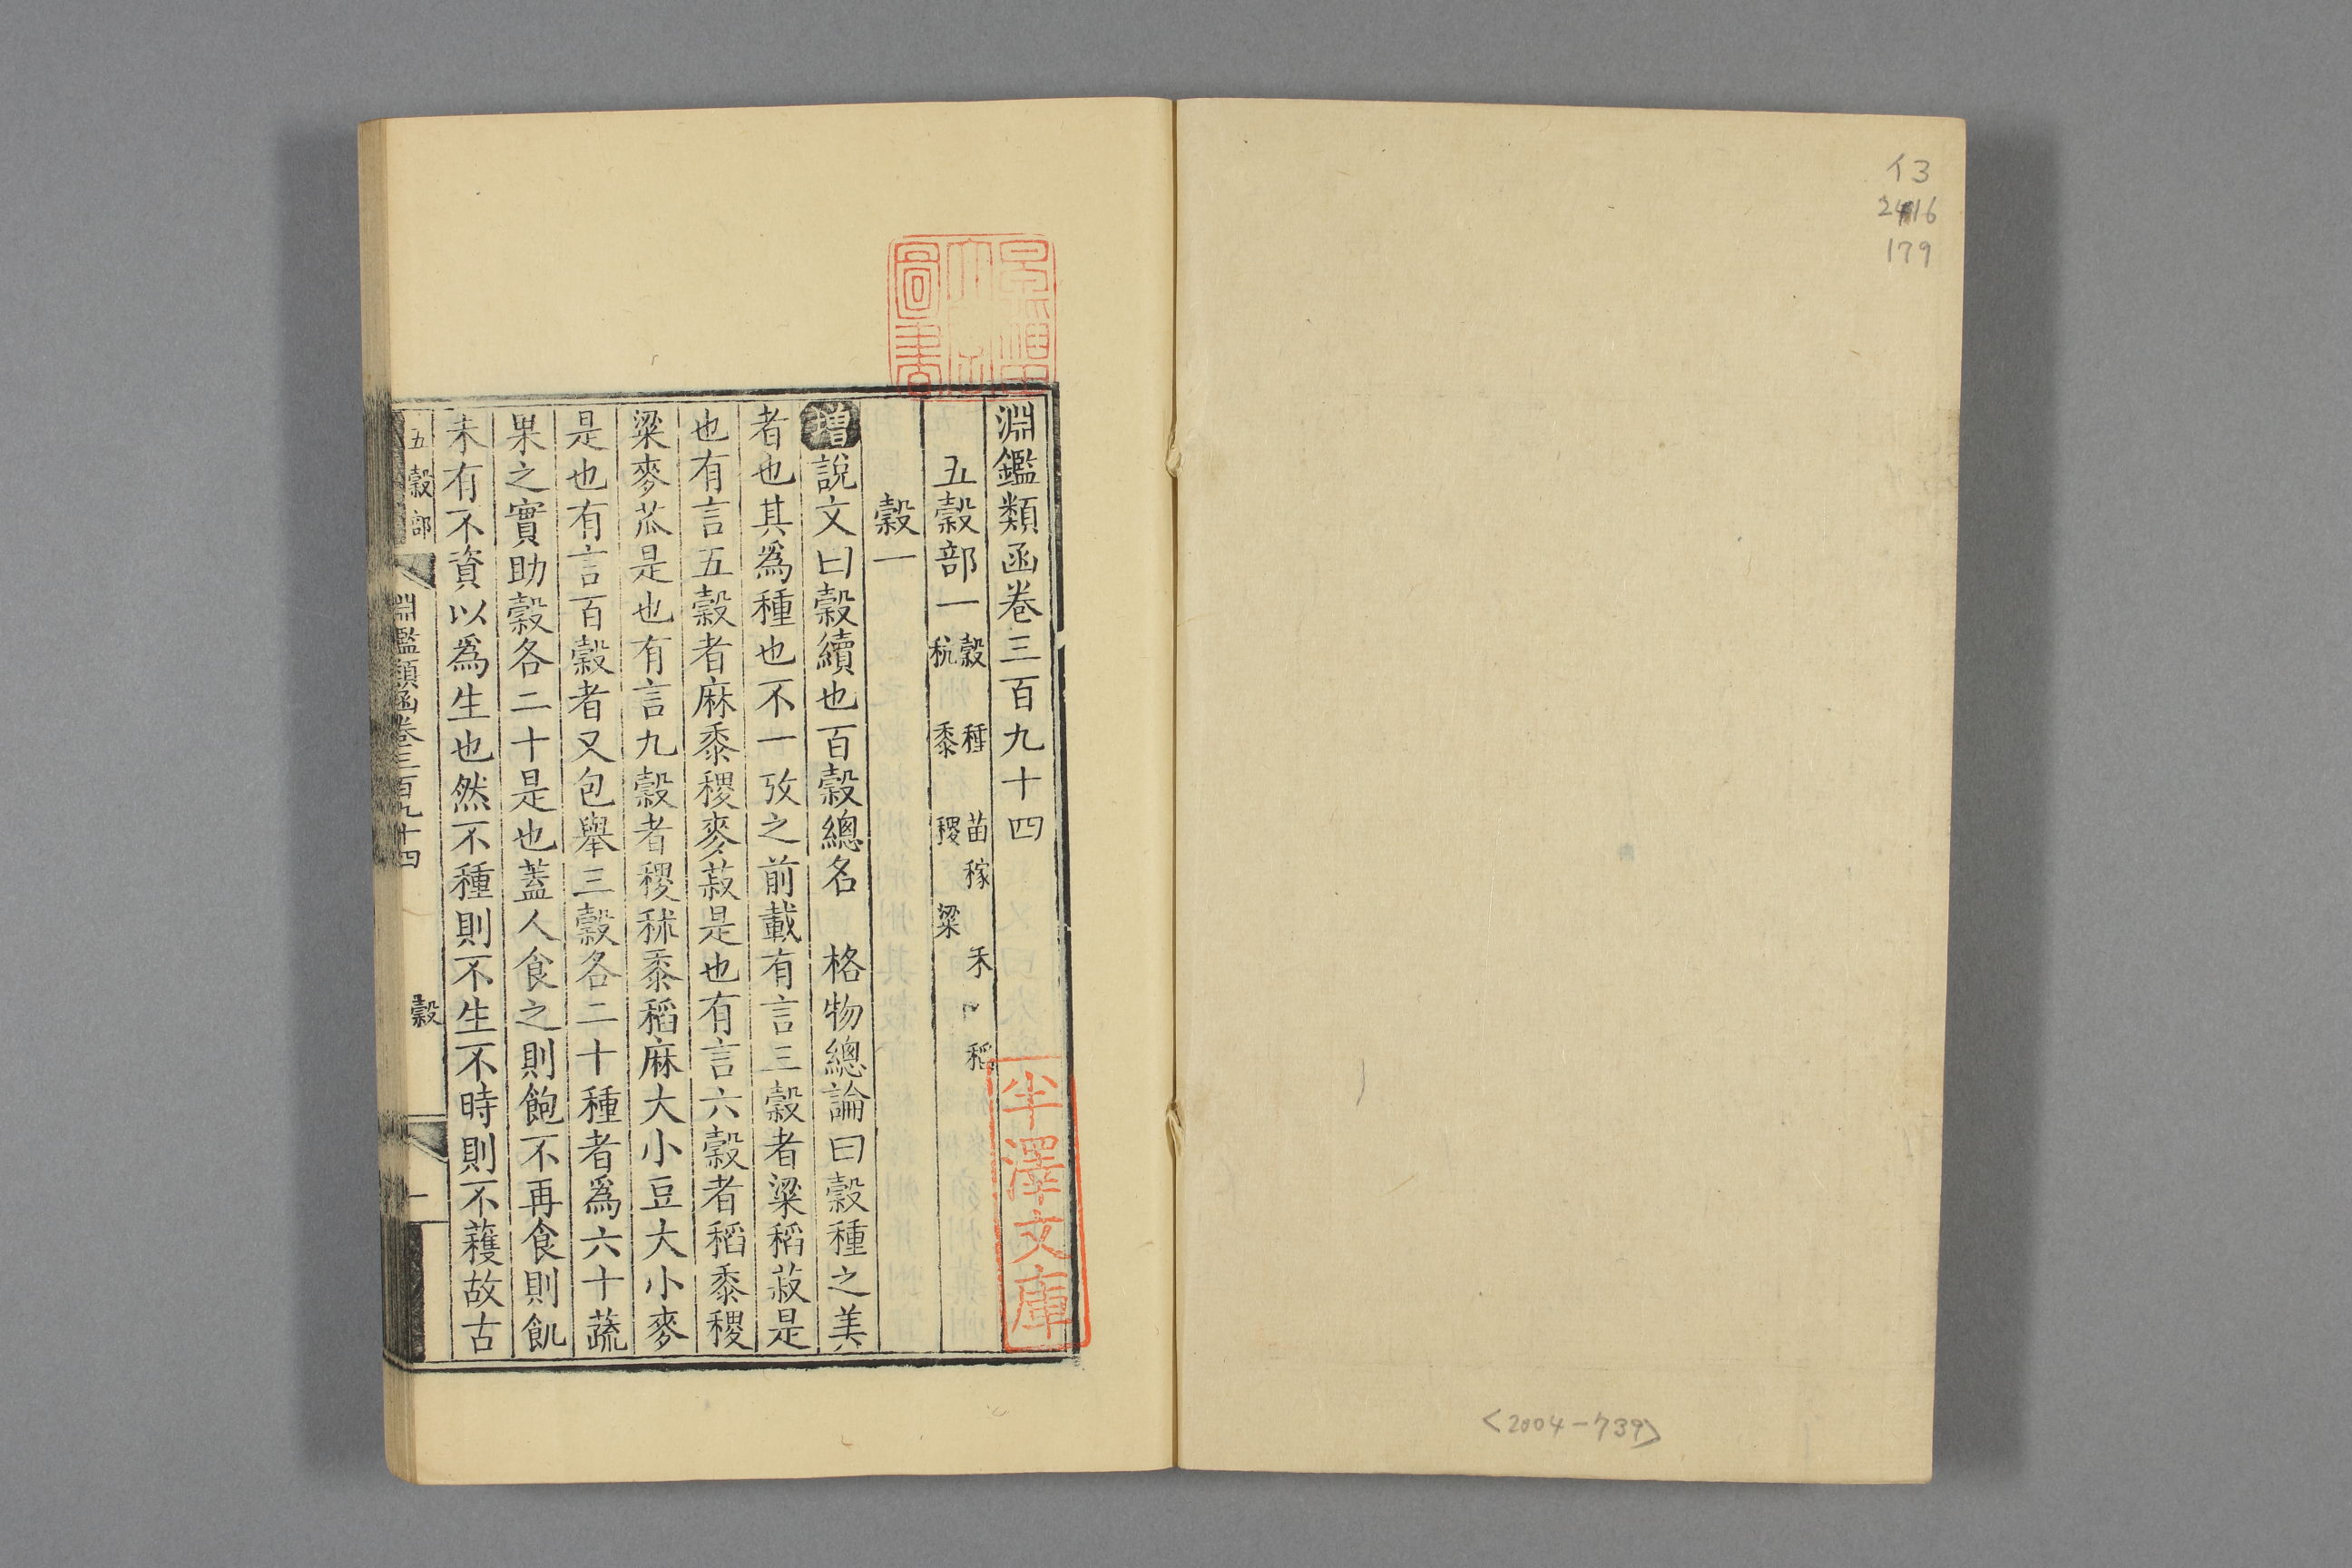 イ3
2416
179
<2004-739>
圖書
半澤文庫
淵鑑類函卷三百九十四
五穀部一 穀 種 苗稼 禾 稻
秔 黍 稷 粱
穀一
增說文曰穀續也百穀總名 格物總論曰穀種之美
者也其爲種也不一攷之前載有言三穀者粱稻菽是
也有言五穀者麻黍稷麥菽是也有言六穀者稻黍稷
粱麥苽是也有言九穀者稷秫黍稻麻大小豆大小麥
是也有言百穀者又包舉三穀各二十種者爲六十蔬
果之實助穀各二十是也蓋人食之則飽不再食則飢
未有不資以爲生也然不種則不生不時則不穫故古
五穀部 淵鑑類函卷三百九十四 穀 一